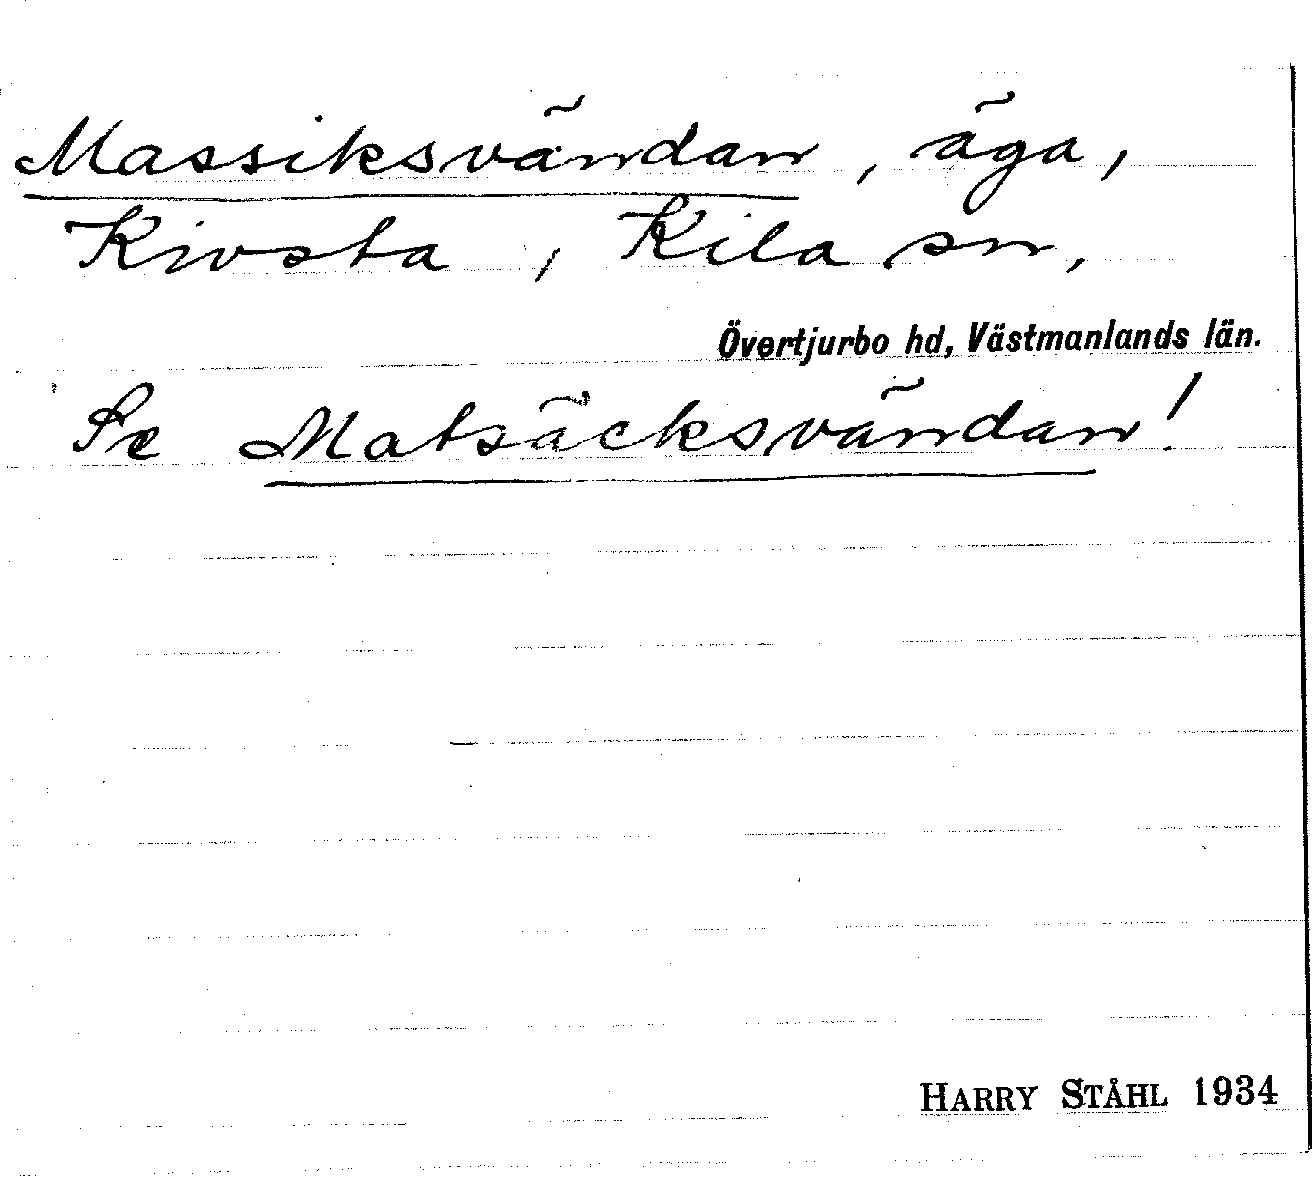 Massiksvändan, äga,
Kivsta, Kila sn,
Övertjurbo hd, Västmanlands län.
Se Matsäcksvändan!
HARRY STÅHL 1934